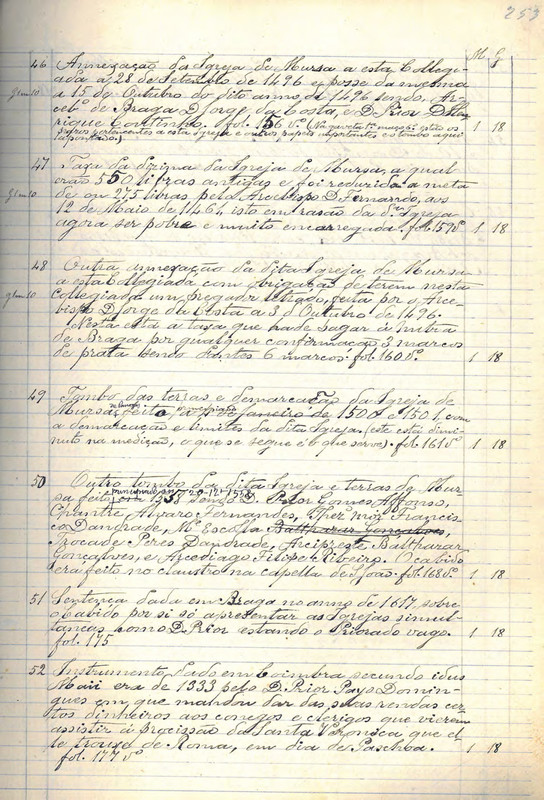 253
M. G
46 Annexação da Igreja de Mursa a esta Collegi-
ada a 28 de Setembro de 1496 e posse da mesma
a 15 de Outubro do dito anno de 1496 sendo Ar-
ceb.º de Braga D. Jorge da Costa, e D. Prior D. Hen-
rique Coutinho. fol. 156 vº (Na gaveta 1ª maço 6 estão os
papeis pertencentes a esta Igreja e outros papeis importantes e o tombo aqui
apontado.) 1 18
47 Taxa da dizima da Igreja de Mursa, a qual
erão 550 libras antigas e foi reduzida a metade
de ou 275 libras pelo Arcebispo D. Fernando, aos
12 de Maio de 1464 isto em rasão da d.ª Igreja
agora ser pobre e muito encarregada. fol. 159 vº 1 18
48 Outra annexação da dita Igreja de Mursa
a esta Collegiada com obrigação de terem nesta
Collegiada um pregador letrado, feita por o Arce-
bispo D. Jorge da Costa a 3 d'Outubro de 1496.
Nesta está a taxa que hade pagar á Mitra
de Braga por qualquer confirmação 3 marcos
de prata sendo d'antes 6 marcos. fol. 160 vº 1 18
49 Tombo das terras e demarcação da Igreja de
Mursa, feito a 4 de Janeiro de 1500 e 1501, com
a demarcação e limites da dita Igreja (este está dimi-
nuto na medição, o que se segue é o que serve). fol. 161 vº 1 18
50 Outro tombo da dita Igreja e terras de Mur-
sa feito principiado em 20-12-1558
em 1557 sendo D. Prior Gomes Affonso,
Chantre Alvaro Fernandes, Thez.º mór Francis-
co Dandrade, M.e Escolla Balthazar Gonçalves,
Trocade Peres Dandrade, Arcipreste Balthazar
Gonçalves, e Arcediago Filipe Ribeiro. O cabido
era feito no claustro na capella de S. João. fol. 168 vº 1 18
51 Sentença dada em Braga no anno de 1617 sobre
o Cabido por si só apresentar as Igrejas simul-
taneas como D. Prior estando o Priorado vago.
fol. 175 1 18
52 Instrumento dado em Coimbra secundo idus
Maii era de 1333 pelo D. Prior Payo Domin-
gues em que mandou dar das suas rendas cer-
tos dinheiros aos conegos e clerigos que vierem
assistir á procissão da Santa Veronica que el-
le trouxe de Roma, em dia de Paschoa.
fol. 177 vº 1 18